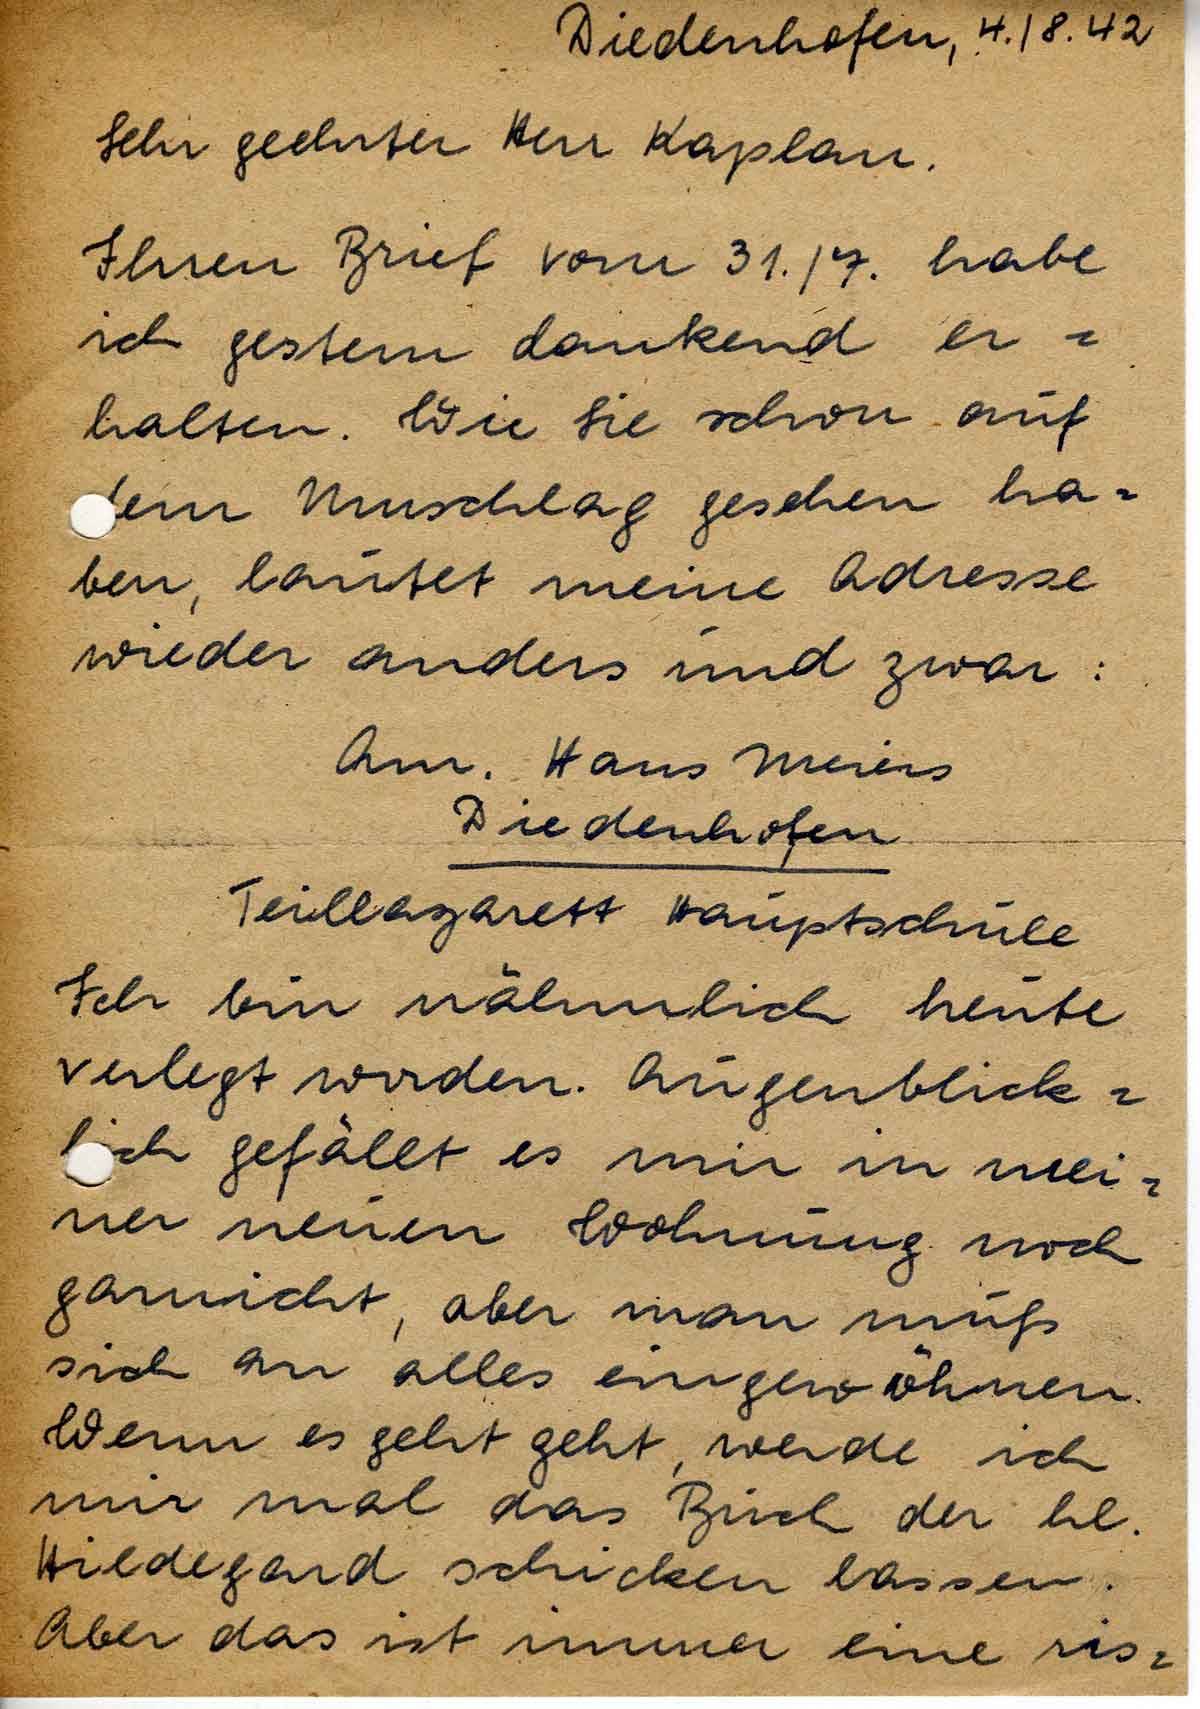 Diedenhofen, 4./8.42
Sehr geehrter Herr Kaplan.
Ihren Brief vom 31./7. habe
ich gestern dankend er=
halten. Wie Sie schon auf
dem Umschlag gesehen ha=
ben, lautet meine Adresse
wieder anders und zwar:
Am. Hans Meiers
Diedenhofen
Teillazarett Hauptschule
Ich bin nähmlich heute
verlegt worden. Augenblick=
lich gefällt es mir in mei=
ner neuen Wohnung noch
garnicht, aber man muß
sich an alles eingewöhnen.
Wenn es geht geht, werde ich
mir mal das Buch der hl.
Hildegard schicken lassen.
Aber das ist immer eine ris=